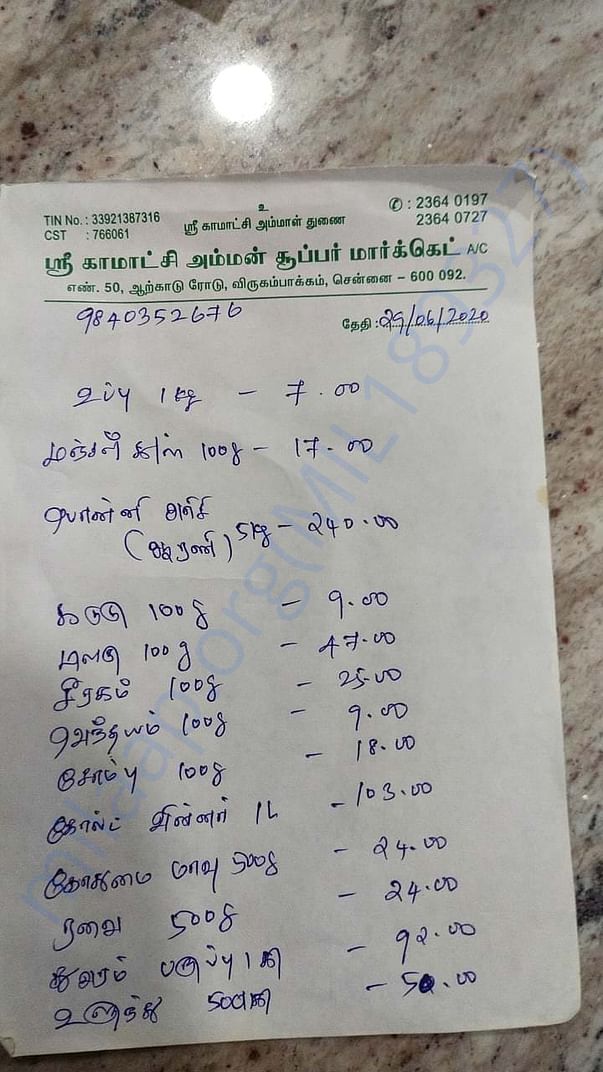 உ
TIN No. : 33921387316
CST : 766061
ஸ்ரீ காமாட்சி அம்மாள் துணை
✆ : 2364 0197
2364 0727
ஸ்ரீ காமாட்சி அம்மன் சூப்பர் மார்க்கெட் A/C
எண். 50, ஆற்காடு ரோடு, விருகம்பாக்கம், சென்னை – 600 092.
9840352676
தேதி : 29/06/2020
உப்பு 1 kg - 7.00
மஞ்சள் தூள் 100g - 17.00
பொன்னி அரிசி
(ஆரணி) 5kg - 240.00
கடுகு 100g - 9.00
மிளகு 100g - 47.00
சீரகம் 100g - 25.00
வெந்தயம் 100g - 9.00
சோம்பு 100g - 18.00
கோல்ட் வின்னர் 1L - 103.00
கோதுமை மாவு 500g - 24.00
ரவை 500g - 24.00
துவரம் பருப்பு 1 கி - 92.00
உளுந்து 500கி - 50.00
milaap.org(MIL189327)